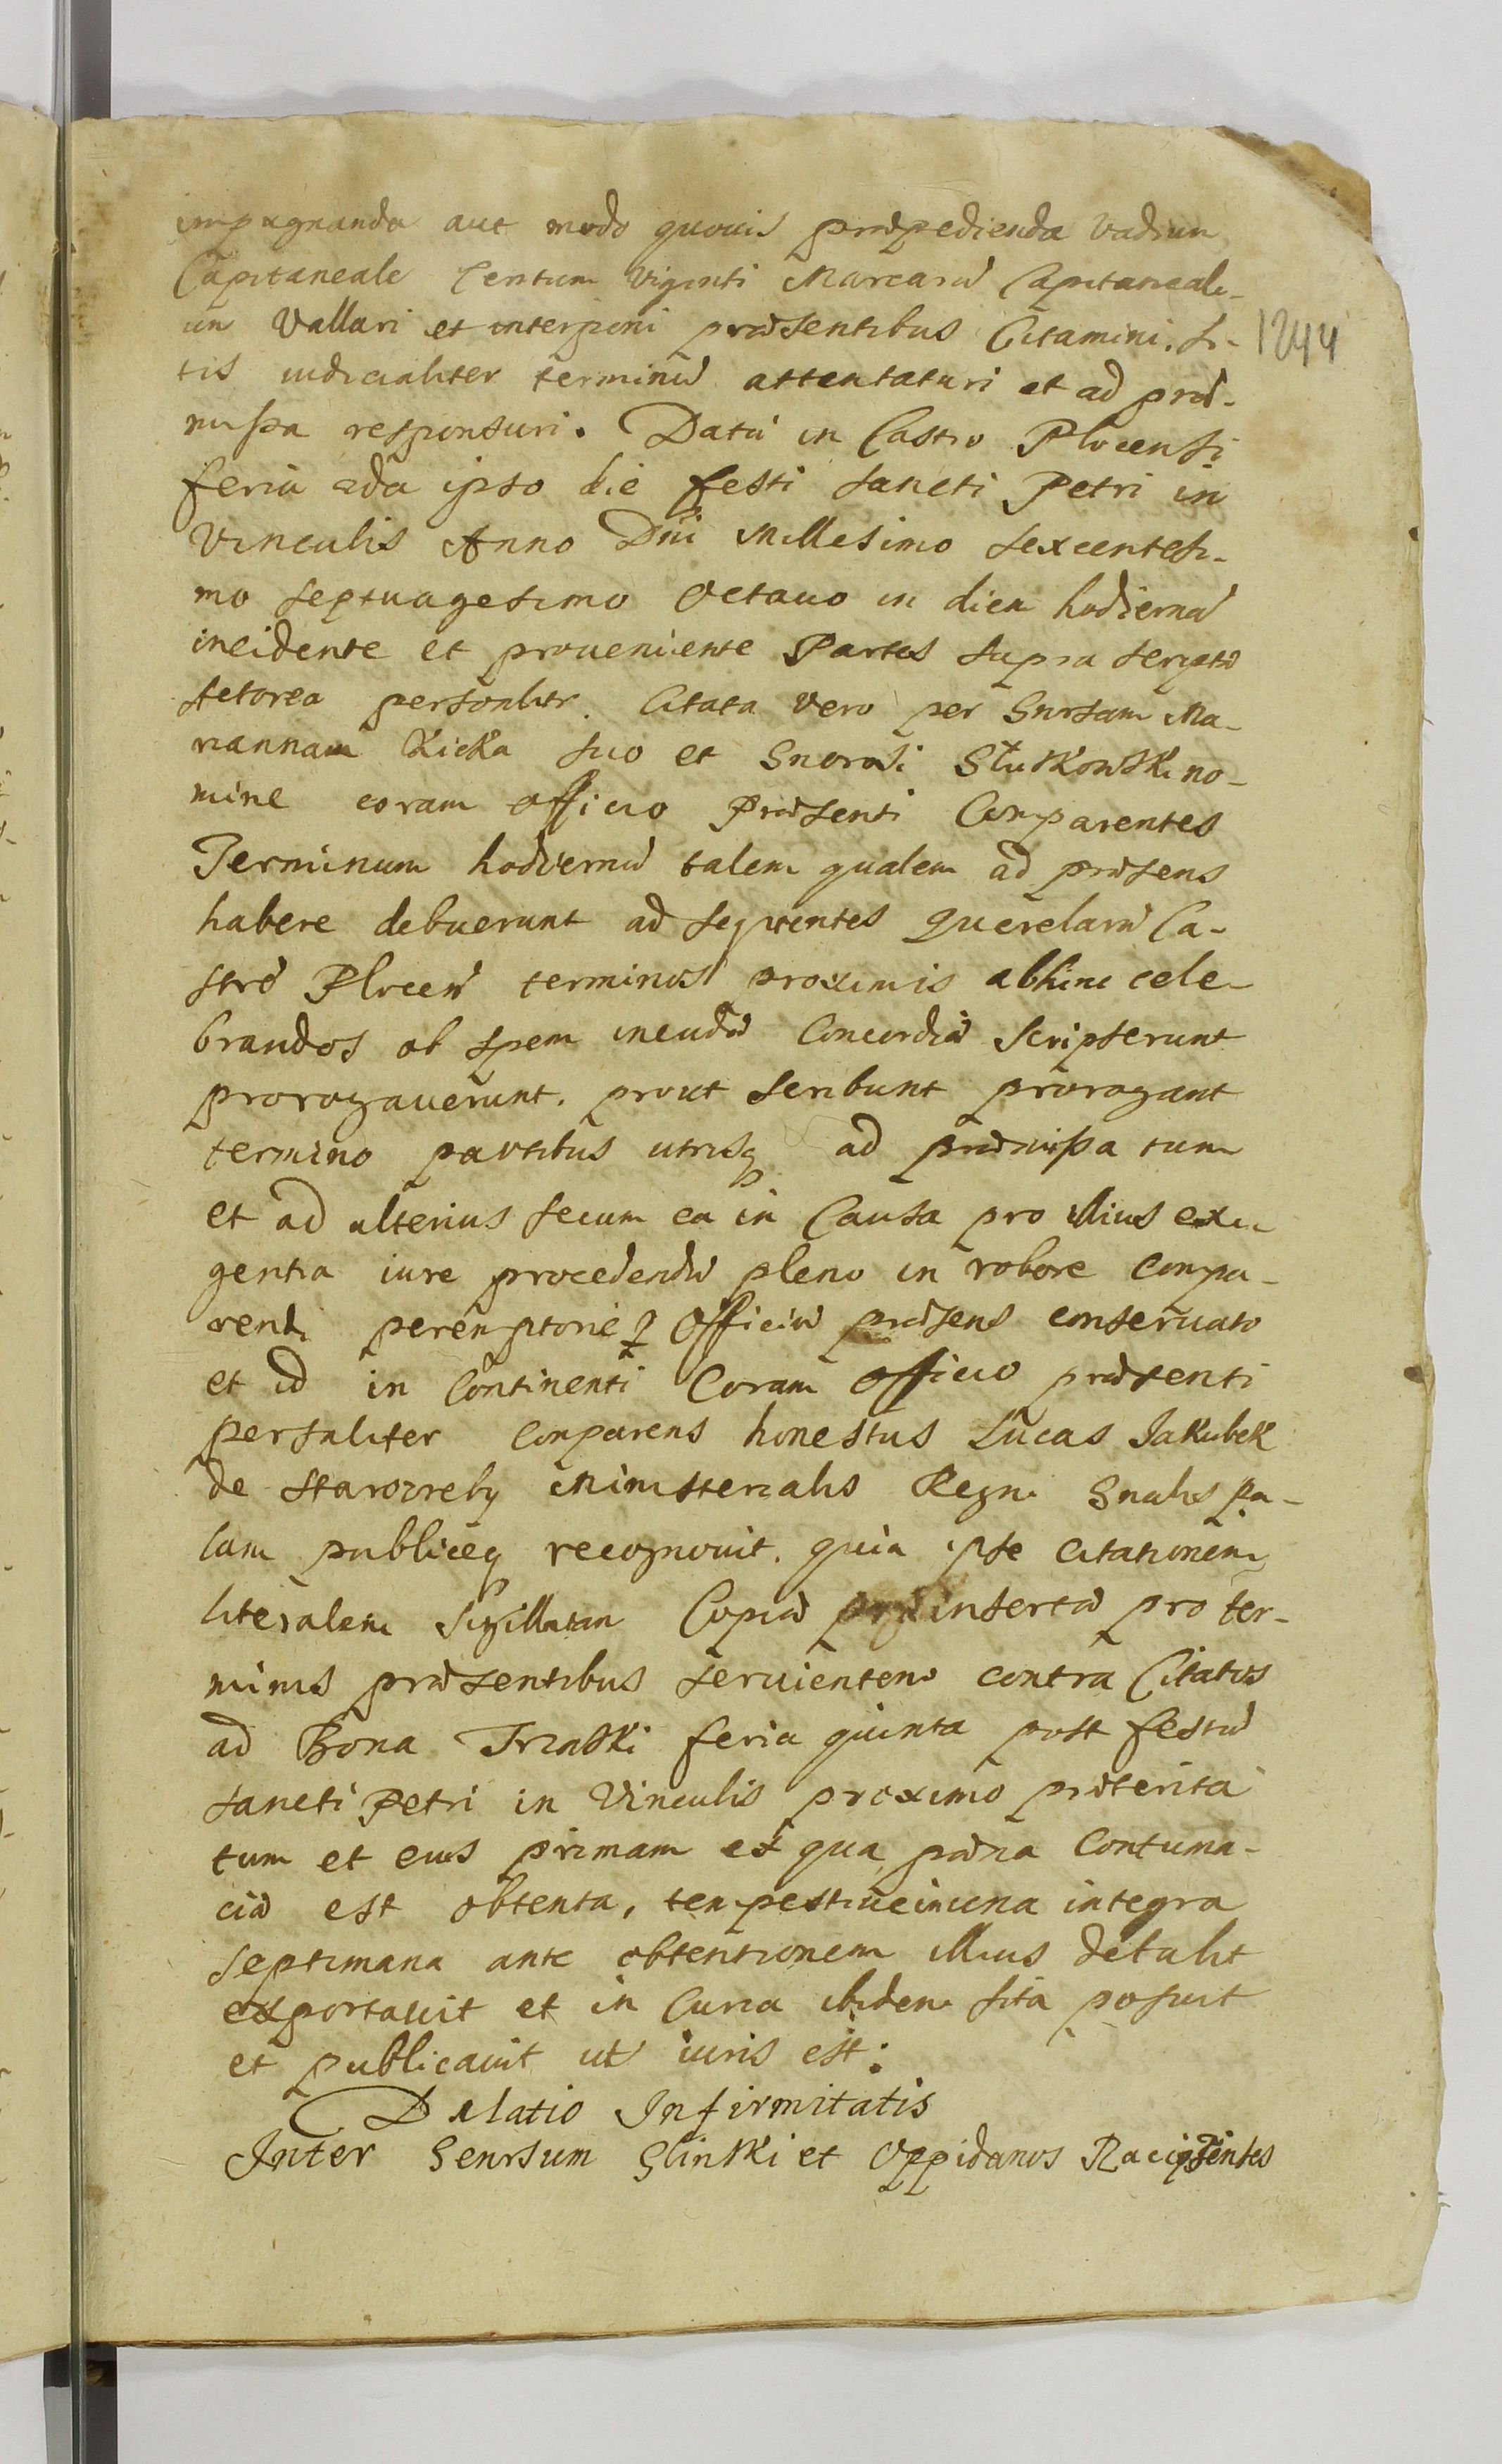 impugnanda aut modo quovis præpedienda Vadium
Capitaneale Centum Viginti Marcarũ Capitaneali-
um Vallari et interponi præsentibus Citamini. Si-
1244
tis iudicialiter terminũ attentaturi et ad præ-
missa responsuri. Datũ in Castro Plocensi
feria 2da ipso die festi Sancti Petri in
Vinculis Anno Dñi Millesimo Sexcentesi-
mo Septuagesimo Octavo in diem hodiernũ
incidente et proveniente Partes supra scriptæ
Actorea personlitr. Citata vero per Gnrsam Ma-
riannam Kicka suo et Gnerosi Słutkowski no-
mine coram officio Præsenti Comparentes
Terminum hodiernũ talem qualem ad præsens
habere debuerunt ad sequentes Querelarũ Ca-
stre Plocen terminos proximis abhinc cele-
brandos ob spem ineundæ Concordiæ Scripserunt
prorogaverunt. prout scribunt prorogant
termino partibus utrisq ad præmissa tum
et ad ulterius secum ea in Causa pro illius exi-
gentia iure procedendũ pleno in robore compa-
rendi peremptorie Officiũ præsens conservato
et id in Continenti Coram Officio præsenti
persnliter Comparens honestus Lucas Jakubek
de Starozreby Ministerialis Regni Gnalis pa-
lam publiceq recognovit. quia ipse Citationem
literalem Sigillatam Copiæ præinsertæ pro ter-
minis præsentibus servientem contra Citatos
ad Bona Trzaski feria quinta post festũ
Sancti Petri in Vinculis proximo præterita
tum et eius primam ex qua pæna Contuma-
ciæ est obtenta, tempestive in una integra
Septimana ante obtentionem illius detulit
exportavit et in Curia ibidem sita posuit
et publicavit ut iuris est:
Dilatio Infirmitatis
Inter Genrsum Glinski et Oppidanos Raciązentes